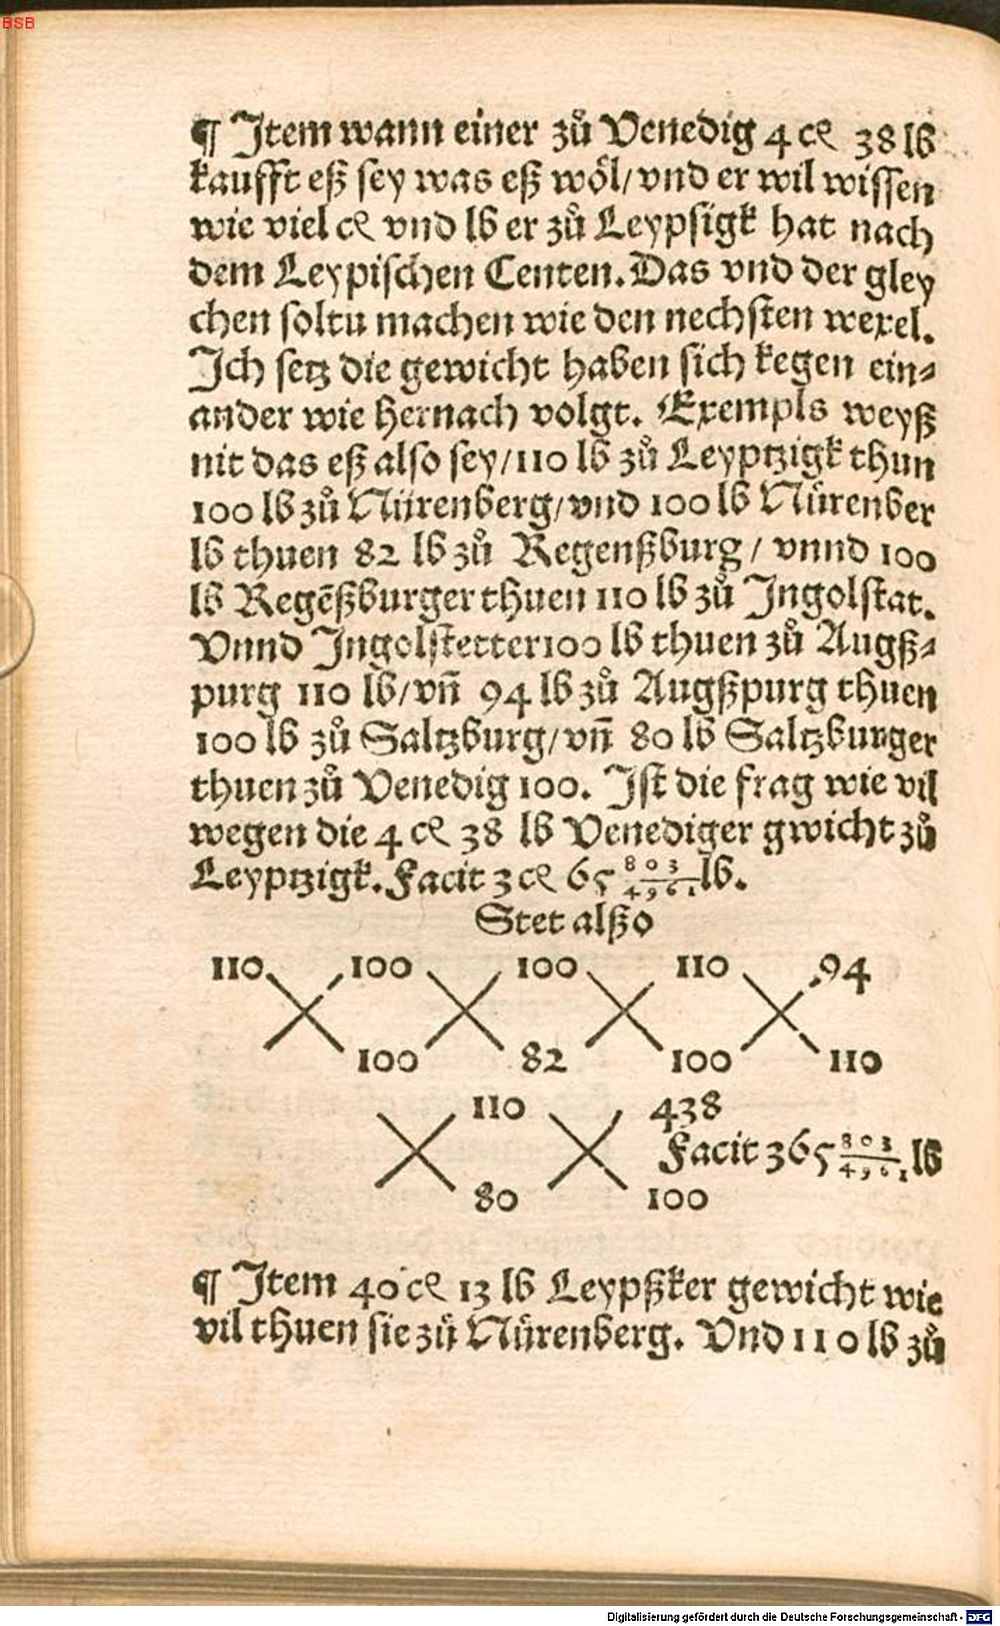 BSB
¶ Item wann einer zů Venedig 4 cꝫ 38 lb
kaufft eß sey was eß wöl/vnd er wil wissen
wie viel cꝫ vnd lb er zů Leypsigk hat nach
dem Leypischen Centen. Das vnd der gley
chen soltu machen wie den nechsten wexel.
Ich setz die gewicht haben sich kegen ein⸗
ander wie hernach volgt. Exempls weyß
nit das eß also sey/110 lb zů Leyptzigk thun
100 lb zů Nürenberg/vnd 100 lb Nürenber
lb thuen 82 lb zů Regenßburg/ vnnd 100
lb Regēßburger thuen 110 lb zů Ingolstat.
Vnnd Ingolstetter 100 lb thuen zů Augß⸗
purg 110 lb/vn̄ 94 lb zů Augßpurg thuen
100 lb zů Saltzburg/vn̄ 80 lb Saltzburger
thuen zů Venedig 100. Ist die frag wie vil
wegen die 4 cꝫ 38 lb Venediger gwicht zů
Leyptzigk. Facit 3 cꝫ 65 803/4961 lb.
Stet alßo
110 100 100 110 94
100 82 100 110
110 438
Facit 365 803/4961 lb
80 100
¶ Item 40 cꝫ 13 lb Leypßker gewicht wie
vil thuen sie zů Nürenberg. Vnd 110 lb zů
Digitalisierung gefördert durch die Deutsche Forschungsgemeinschaft - DFG